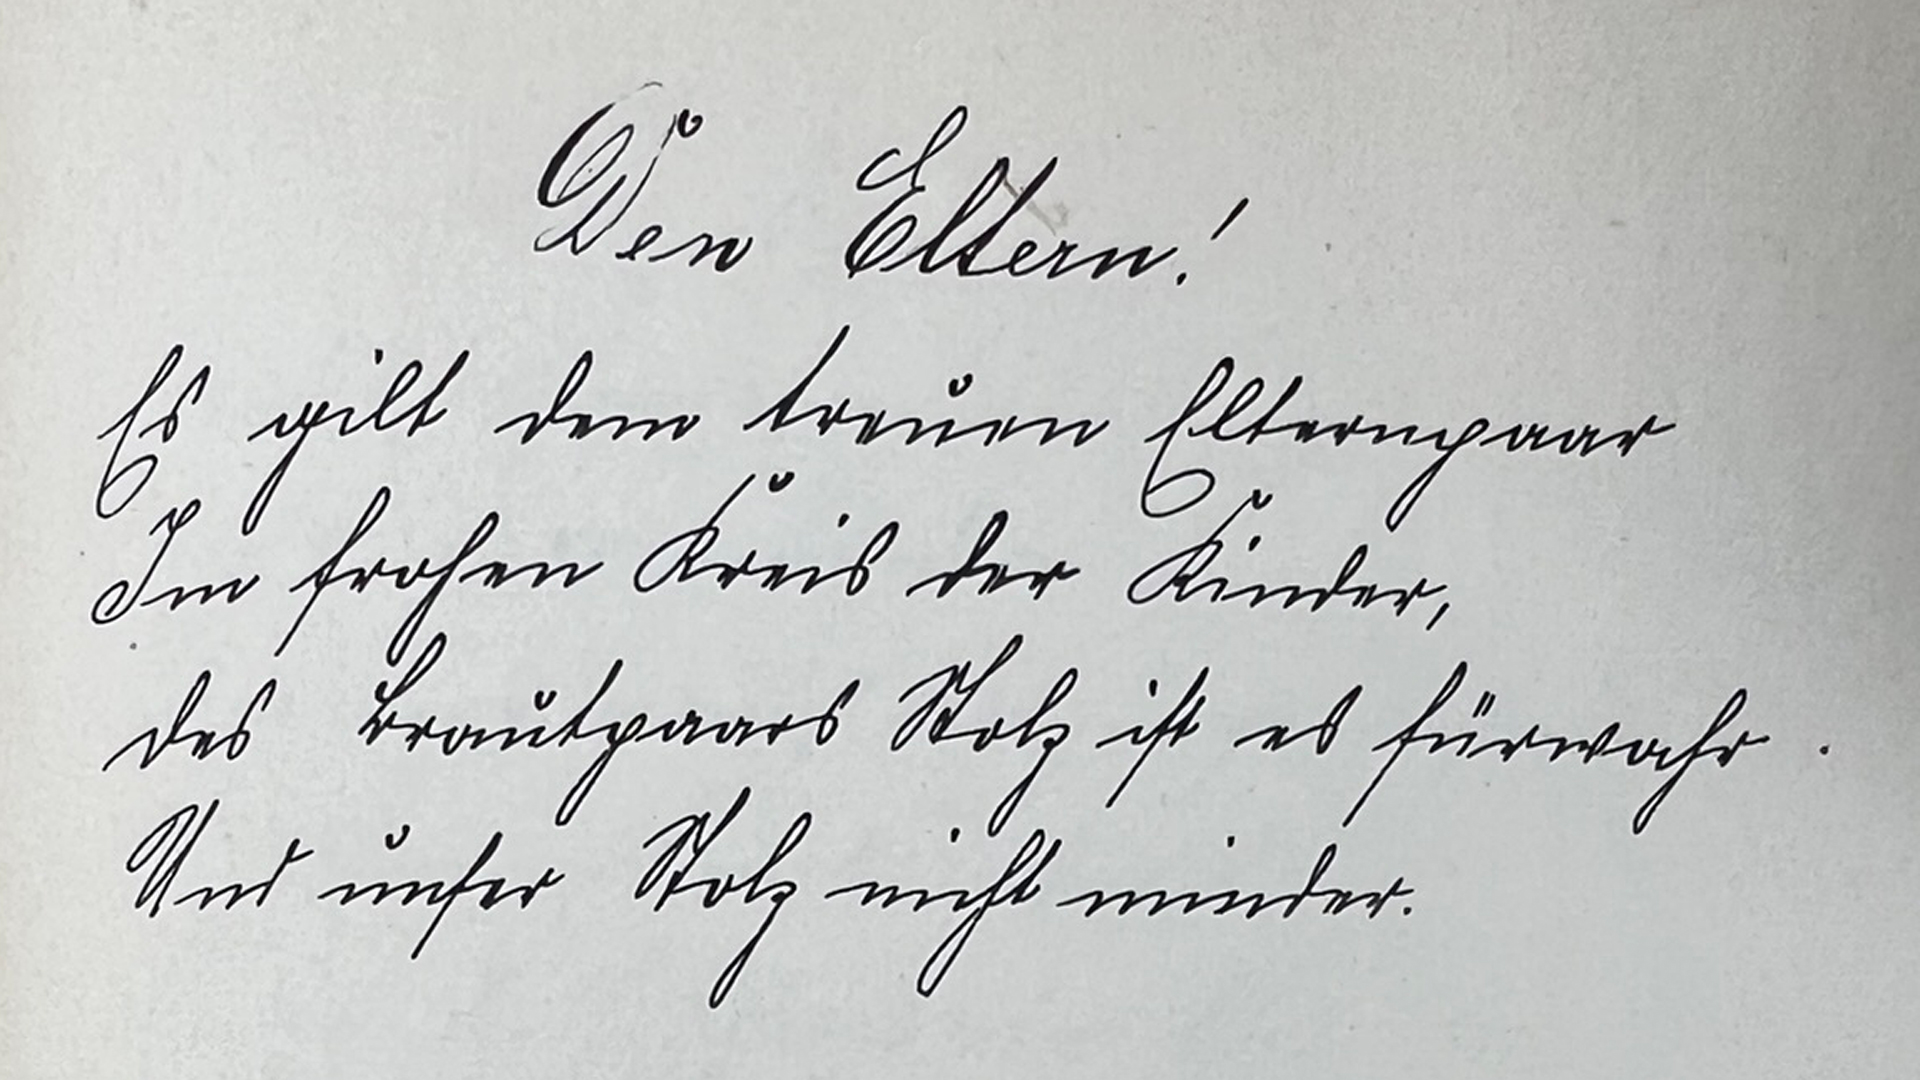 Den Eltern!
Es gilt dem treuen Elternpaar
Im frohen Kreis der Kinder,
des Brautpaars Stolz ist es fürwahr.
Und unser Stolz nicht minder.